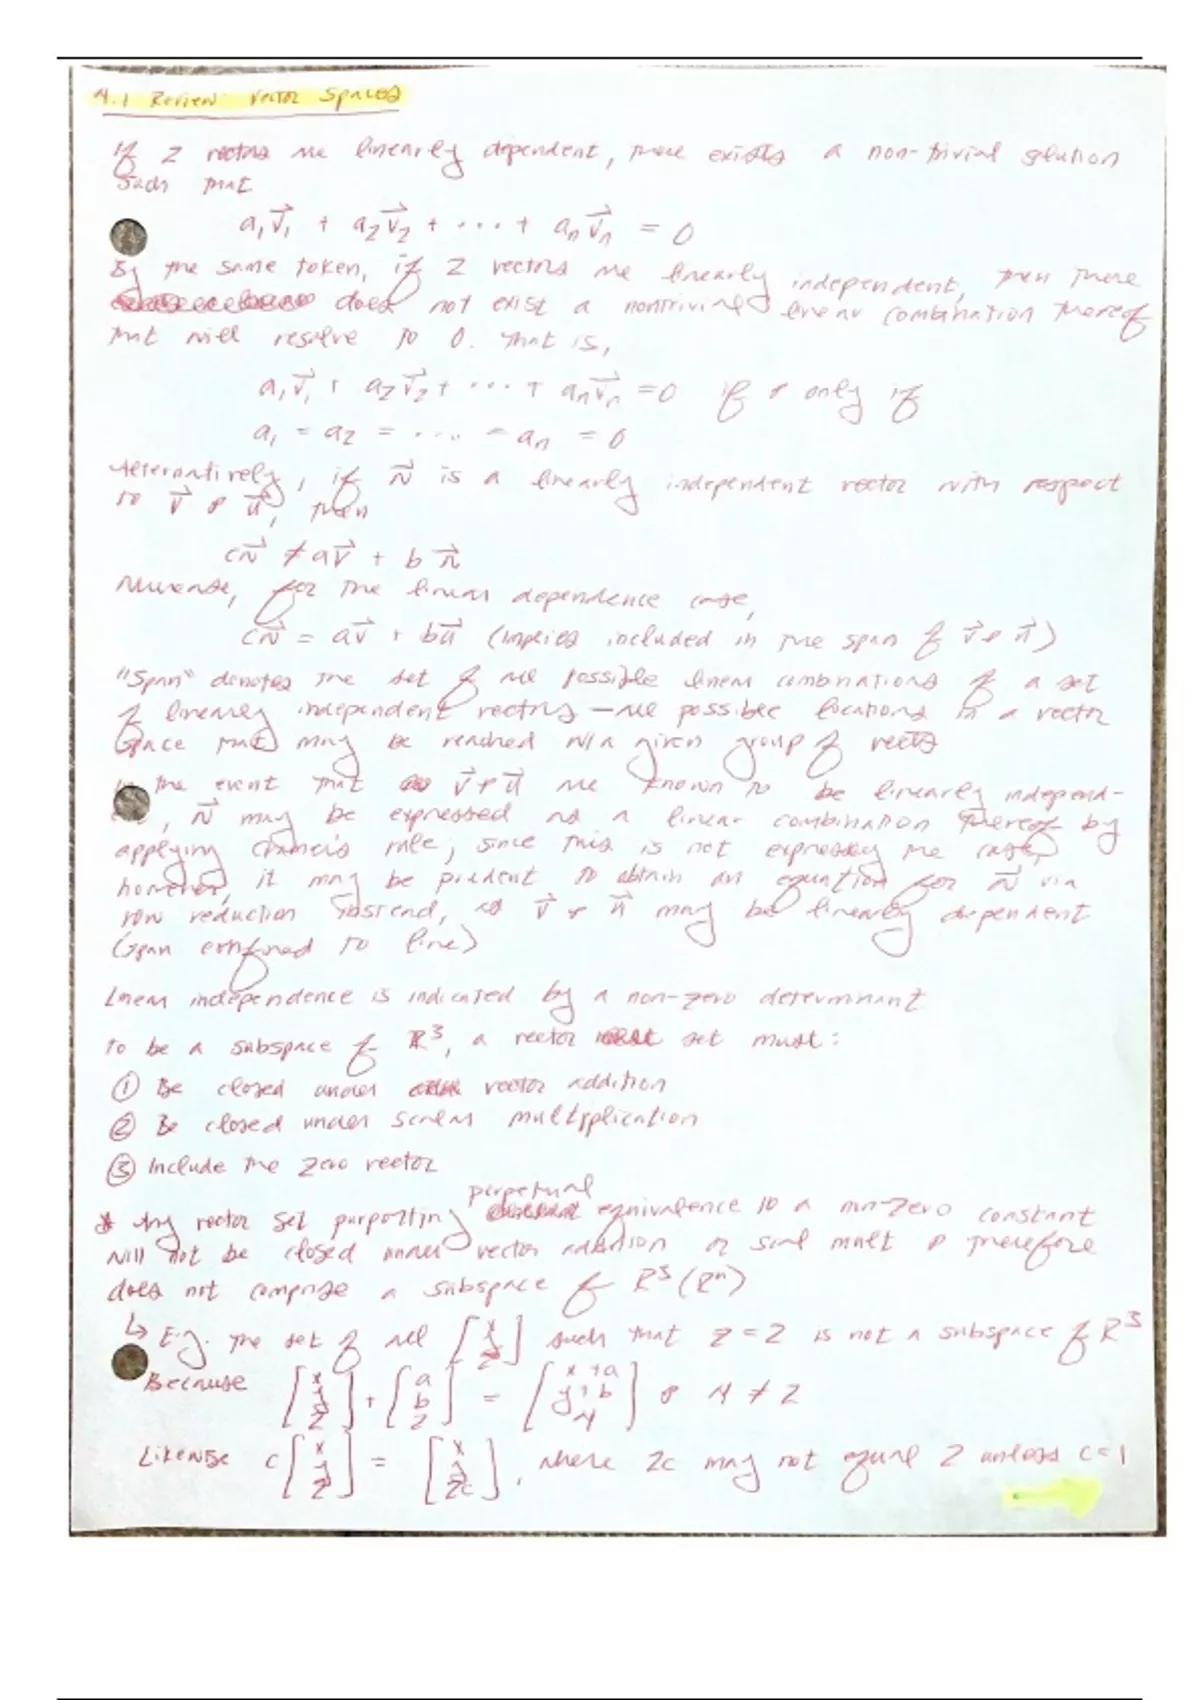 4.1 Review: Vector Spaces
If 2 vectors are linearly dependent, there exists a non-trivial solution
such that
a₁v⃗₁ + a₂v⃗₂ + ... + aₙv⃗ₙ = 0
By the same token, if 2 vectors are linearly independent, then there
does not exist a nontrivial linear combination thereof
that will resolve to 0. That is,
a₁v⃗₁ + a₂v⃗₂ + ... + aₙv⃗ₙ = 0 if & only if
a₁ = a₂ = ... = aₙ = 0
Alternatively, if w⃗ is a linearly independent vector with respect
to v⃗ & u⃗, then
cw⃗ ≠ av⃗ + bu⃗
for the linear dependence case,
cw⃗ = av⃗ + bu⃗ (implies included in the span of v⃗ & u⃗)
"Span" denotes the set of all possible linear combinations of a set
of linearly independent vectors — all possible locations in a vector
space that may be reached w/a given group of vects
In the event that v⃗ & u⃗ are known to be linearly independ-
, w⃗ may be expressed as a linear combination thereof by
applying Cramer's rule; since this is not expressly the case,
however, it may be prudent to obtain an equation for w⃗ via
row reduction instead, as v⃗ & u⃗ may be linearly dependent
(span confined to line)
Linear independence is indicated by a non-zero determinant
To be a subspace of R³, a vector set must:
① Be closed under vector addition
② Be closed under scalar multiplication
③ Include the zero vector
* Any vector set purporting perpetual equivalence to a non-zero constant
will not be closed under vector addition or scal mult & therefore
does not comprise a subspace of R³ (Rⁿ)
↳ E.g. The set of all [x y z] such that z = 2 is not a subspace of R³
Because [x y 2] + [a b 2] = [x+a y+b 4] & 4 ≠ 2
Likewise c[x y 2] = [x y 2c], where 2c may not equal 2 unless c=1